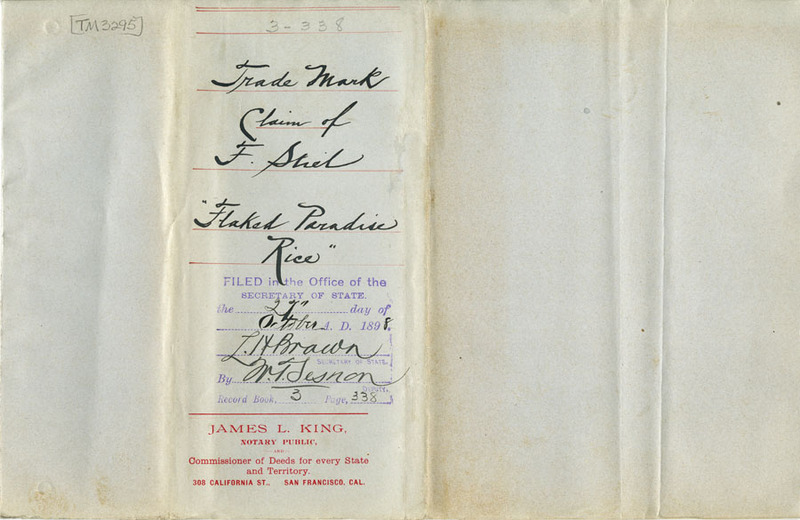 [TM3295]
3-338
Trade Mark
Claim of
F. Stiel
"Flaked Paradise
Rice"
FILED in the Office of the
SECRETARY OF STATE.
the 27th day of
October A. D. 1898.
L. H. Brown
SECRETARY OF STATE.
By W. T. Sesnon
DEPUTY.
Record Book, 3 Page, 338
JAMES L. KING,
NOTARY PUBLIC,
AND
Commissioner of Deeds for every State
and Territory.
308 CALIFORNIA ST., SAN FRANCISCO, CAL.